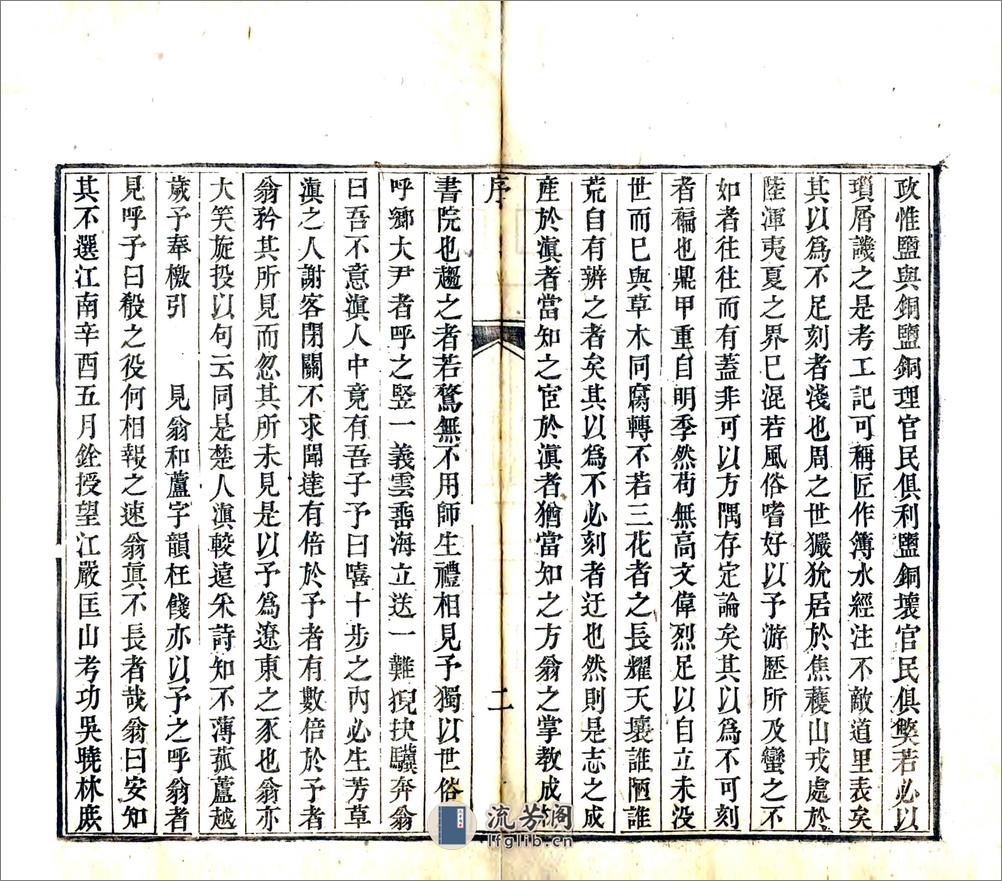 政惟鹽與銅鹽銅理官民俱利鹽銅壞官民俱獘若必以
瑣屑譏之是考工記可稱匠作簿水經注不敵道里表矣
其以爲不足刻者淺也周之世玁狁居於焦穫山戎處於
陸渾夷夏之界已混若風俗嗜好以予游歷所及蠻之不
如者往往而有蓋非可以方隅存定論矣其以爲不可刻
者褊也鼎甲重自明季然苟無高文偉烈足以自立未没
世而已與草木同腐轉不若三花者之長耀天壤誰陋誰
荒自有辨之者矣其以爲不必刻者迂也然則是志之成
産於滇者當知之宦於滇者猶當知之方翁之掌教成材
序
二
書院也趨之者若鶩無不用師生禮相見予獨以世俗之
呼鄉大尹者呼之竪一義雲垂海立送一難猊抉驥奔翁
曰吾不意滇人中竟有吾子予曰嘻十步之內必生芳草
滇之人謝客閉關不求聞達有倍於予者有數倍於予者
翁矜其所見而忽其所未見是以予爲遼東之豕也翁亦
大笑旋投以句云同是楚人滇較遠采詩知不薄菰蘆越
歲予奉檄引 見翁和蘆字韻枉餞亦以予之呼翁者
見呼予曰殽之役何相報之速翁眞不長者哉翁曰安知
其不選江南辛酉五月銓授望江嚴匡山考功吳曉林庶
流芳阁
lfglib.cn